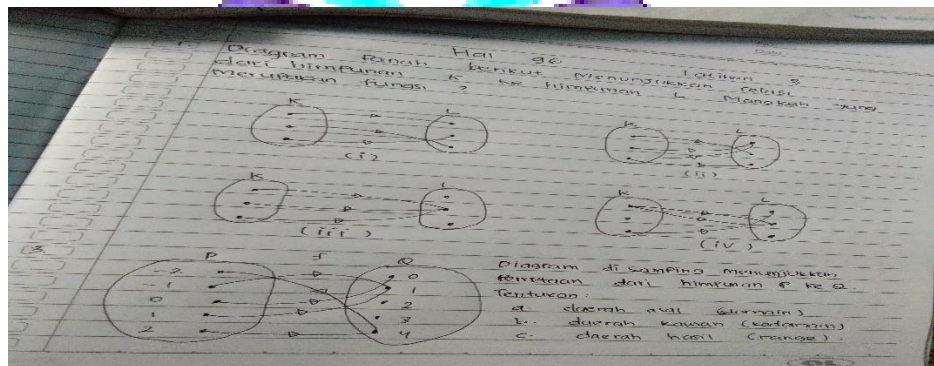 Hal 96
Latihan 2
1. Diagram Panah berikut Menunjukkan relasi
dari himpunan K ke himpunan L Manakah yang
Merupakan fungsi ?
K L
(i)
K L
(ii)
K L
(iii)
K L
(iv)
(3.
P f Q
-2 0
-1 1
0 2
1 3
2 4
Diagram di samping menunjukkan
Pemetaan dari himpunan P ke Q.
Tentukan.
a. daerah asal (domain)
b. daerah kawan (kodomain)
c. daerah hasil (range).